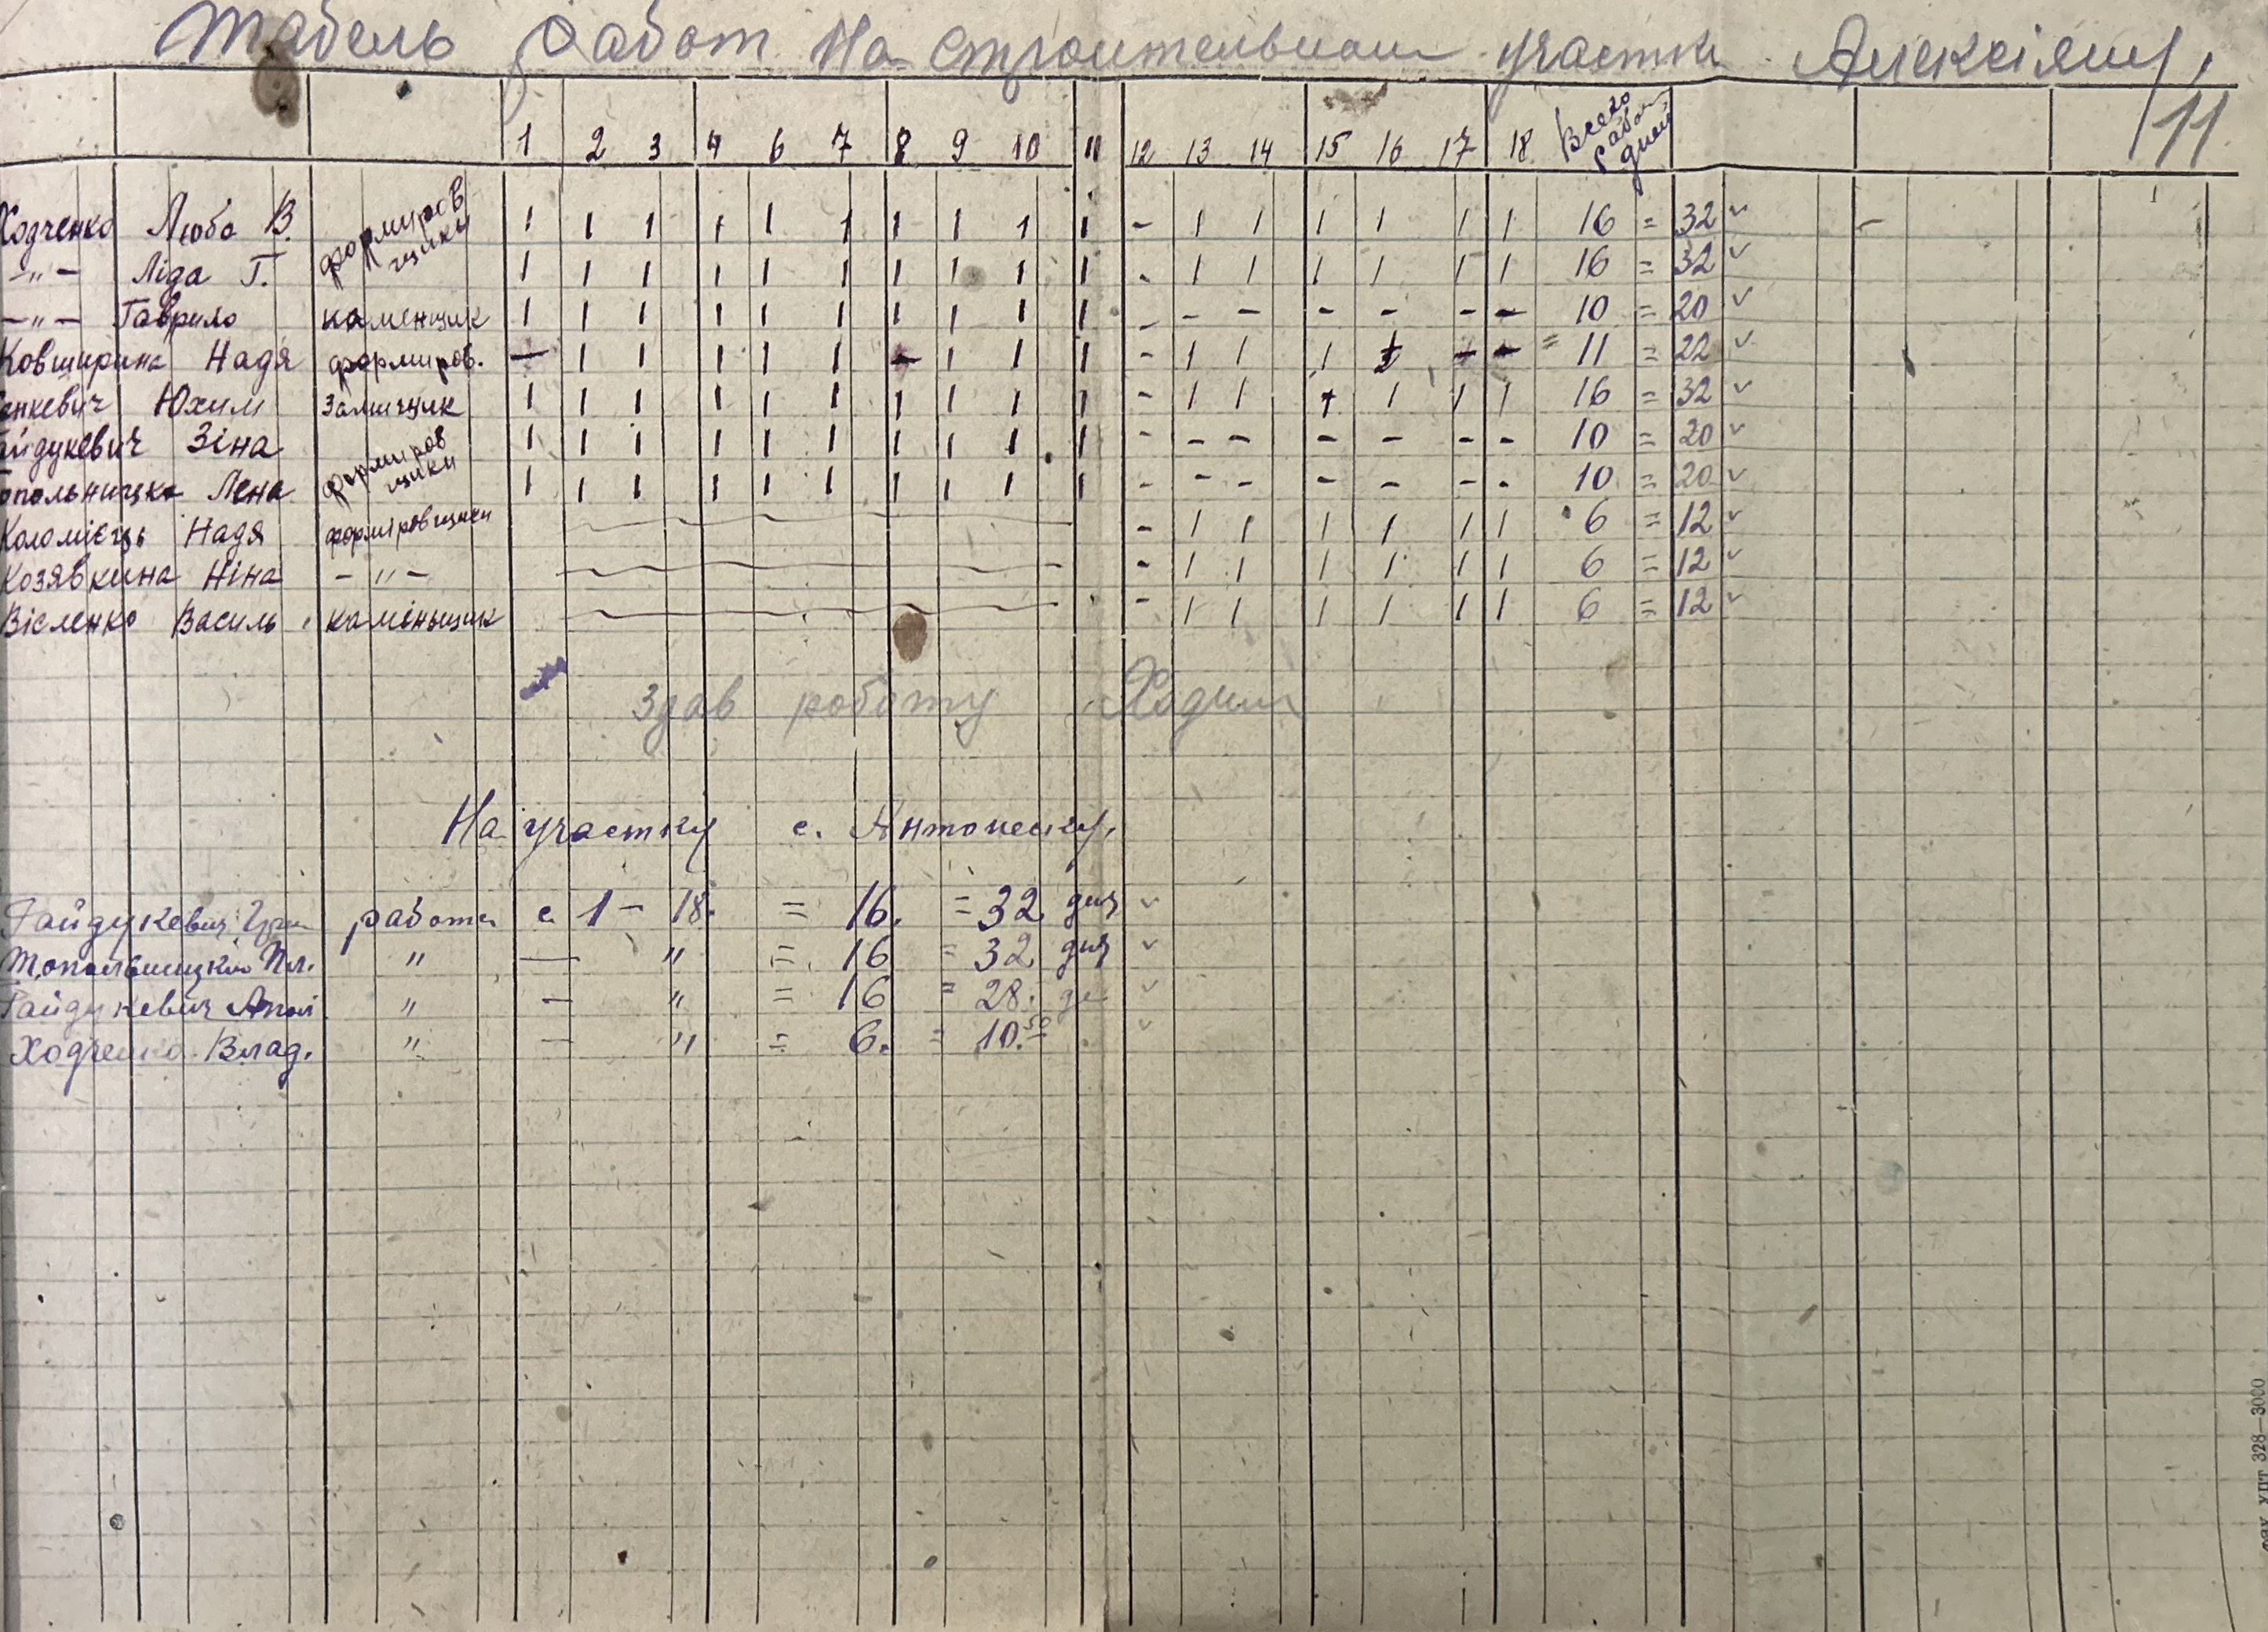 Табель работ на строительном участке Алексіяну,
11
1 2 3 4 6 7 8 9 10 11 12 13 14 15 16 17 18 Всего рабоч дней
Ходченко Люба В. формировщики 1 1 1 1 1 1 1 1 1 1 - 1 1 1 1 1 1 16 = 32 ✓
-"- Ліда Г. 1 1 1 1 1 1 1 1 1 1 - 1 1 1 1 1 1 16 = 32 ✓
-"- Гаврило каменщик 1 1 1 1 1 1 1 1 1 1 - - - - - - - 10 = 20 ✓
Ковширина Надя формиров. - 1 1 1 1 1 - 1 1 1 - 1 1 1 = 11 = 22 ✓
енкевич Юхим 1 1 1 1 1 1 1 1 1 1 - 1 1 1 1 1 1 16 = 32 ✓
айдукевич Зіна формировщики 1 1 1 1 1 1 1 1 1 1 - - - - - - - 10 = 20 ✓
опольницка Лена 1 1 1 1 1 1 1 1 1 1 - - - - - - - 10 = 20 ✓
Коломієць Надя форміровщики - 1 1 1 1 1 1 6 = 12 ✓
Козявкина Ніна -"- - 1 1 1 1 1 1 6 = 12 ✓
Вісленко Василь каміньщик - 1 1 1 1 1 1 6 = 12 ✓
Здав роботу
На участку с. Антонеску,
Гайдукевич работ с 1 - 18. = 16. = 32 дня ✓
Топольницкий Пл. " — " = 16 = 32 дня ✓
Гайдукевич " — " = 16 = 28. ✓
Ходченко Влад. " — " = 6. = 10.50 ✓
328-3000